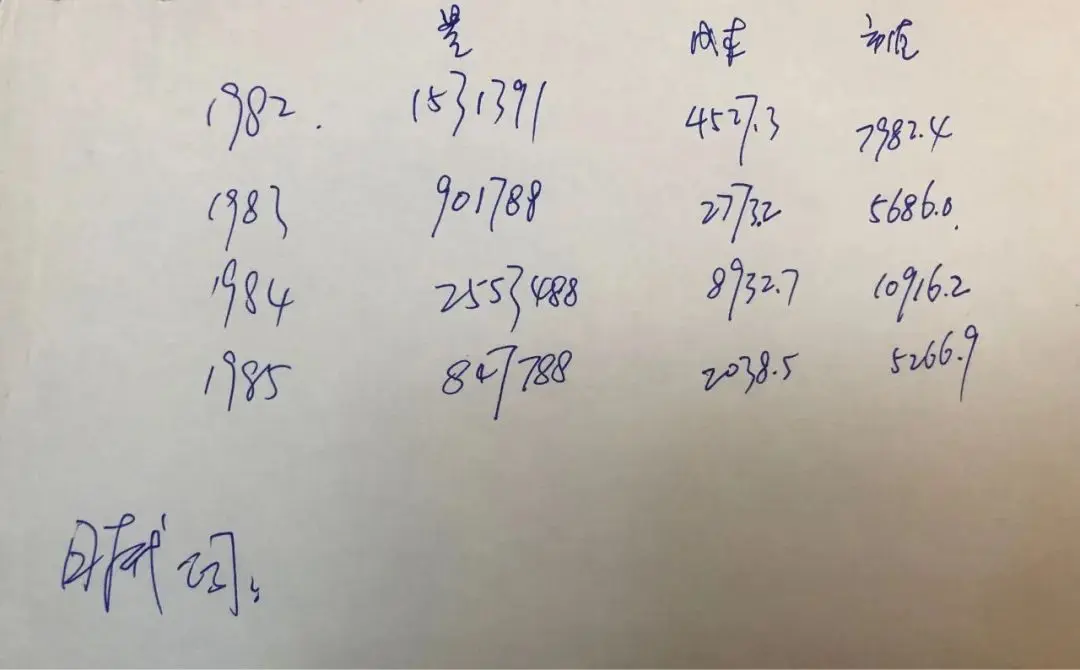 量 成本 市值
1982. 1531391 4527.3 7982.4
1983 901788 2773.2 5686.0
1984 2553488 8932.7 10916.2
1985 847788 2038.5 5266.9
公司